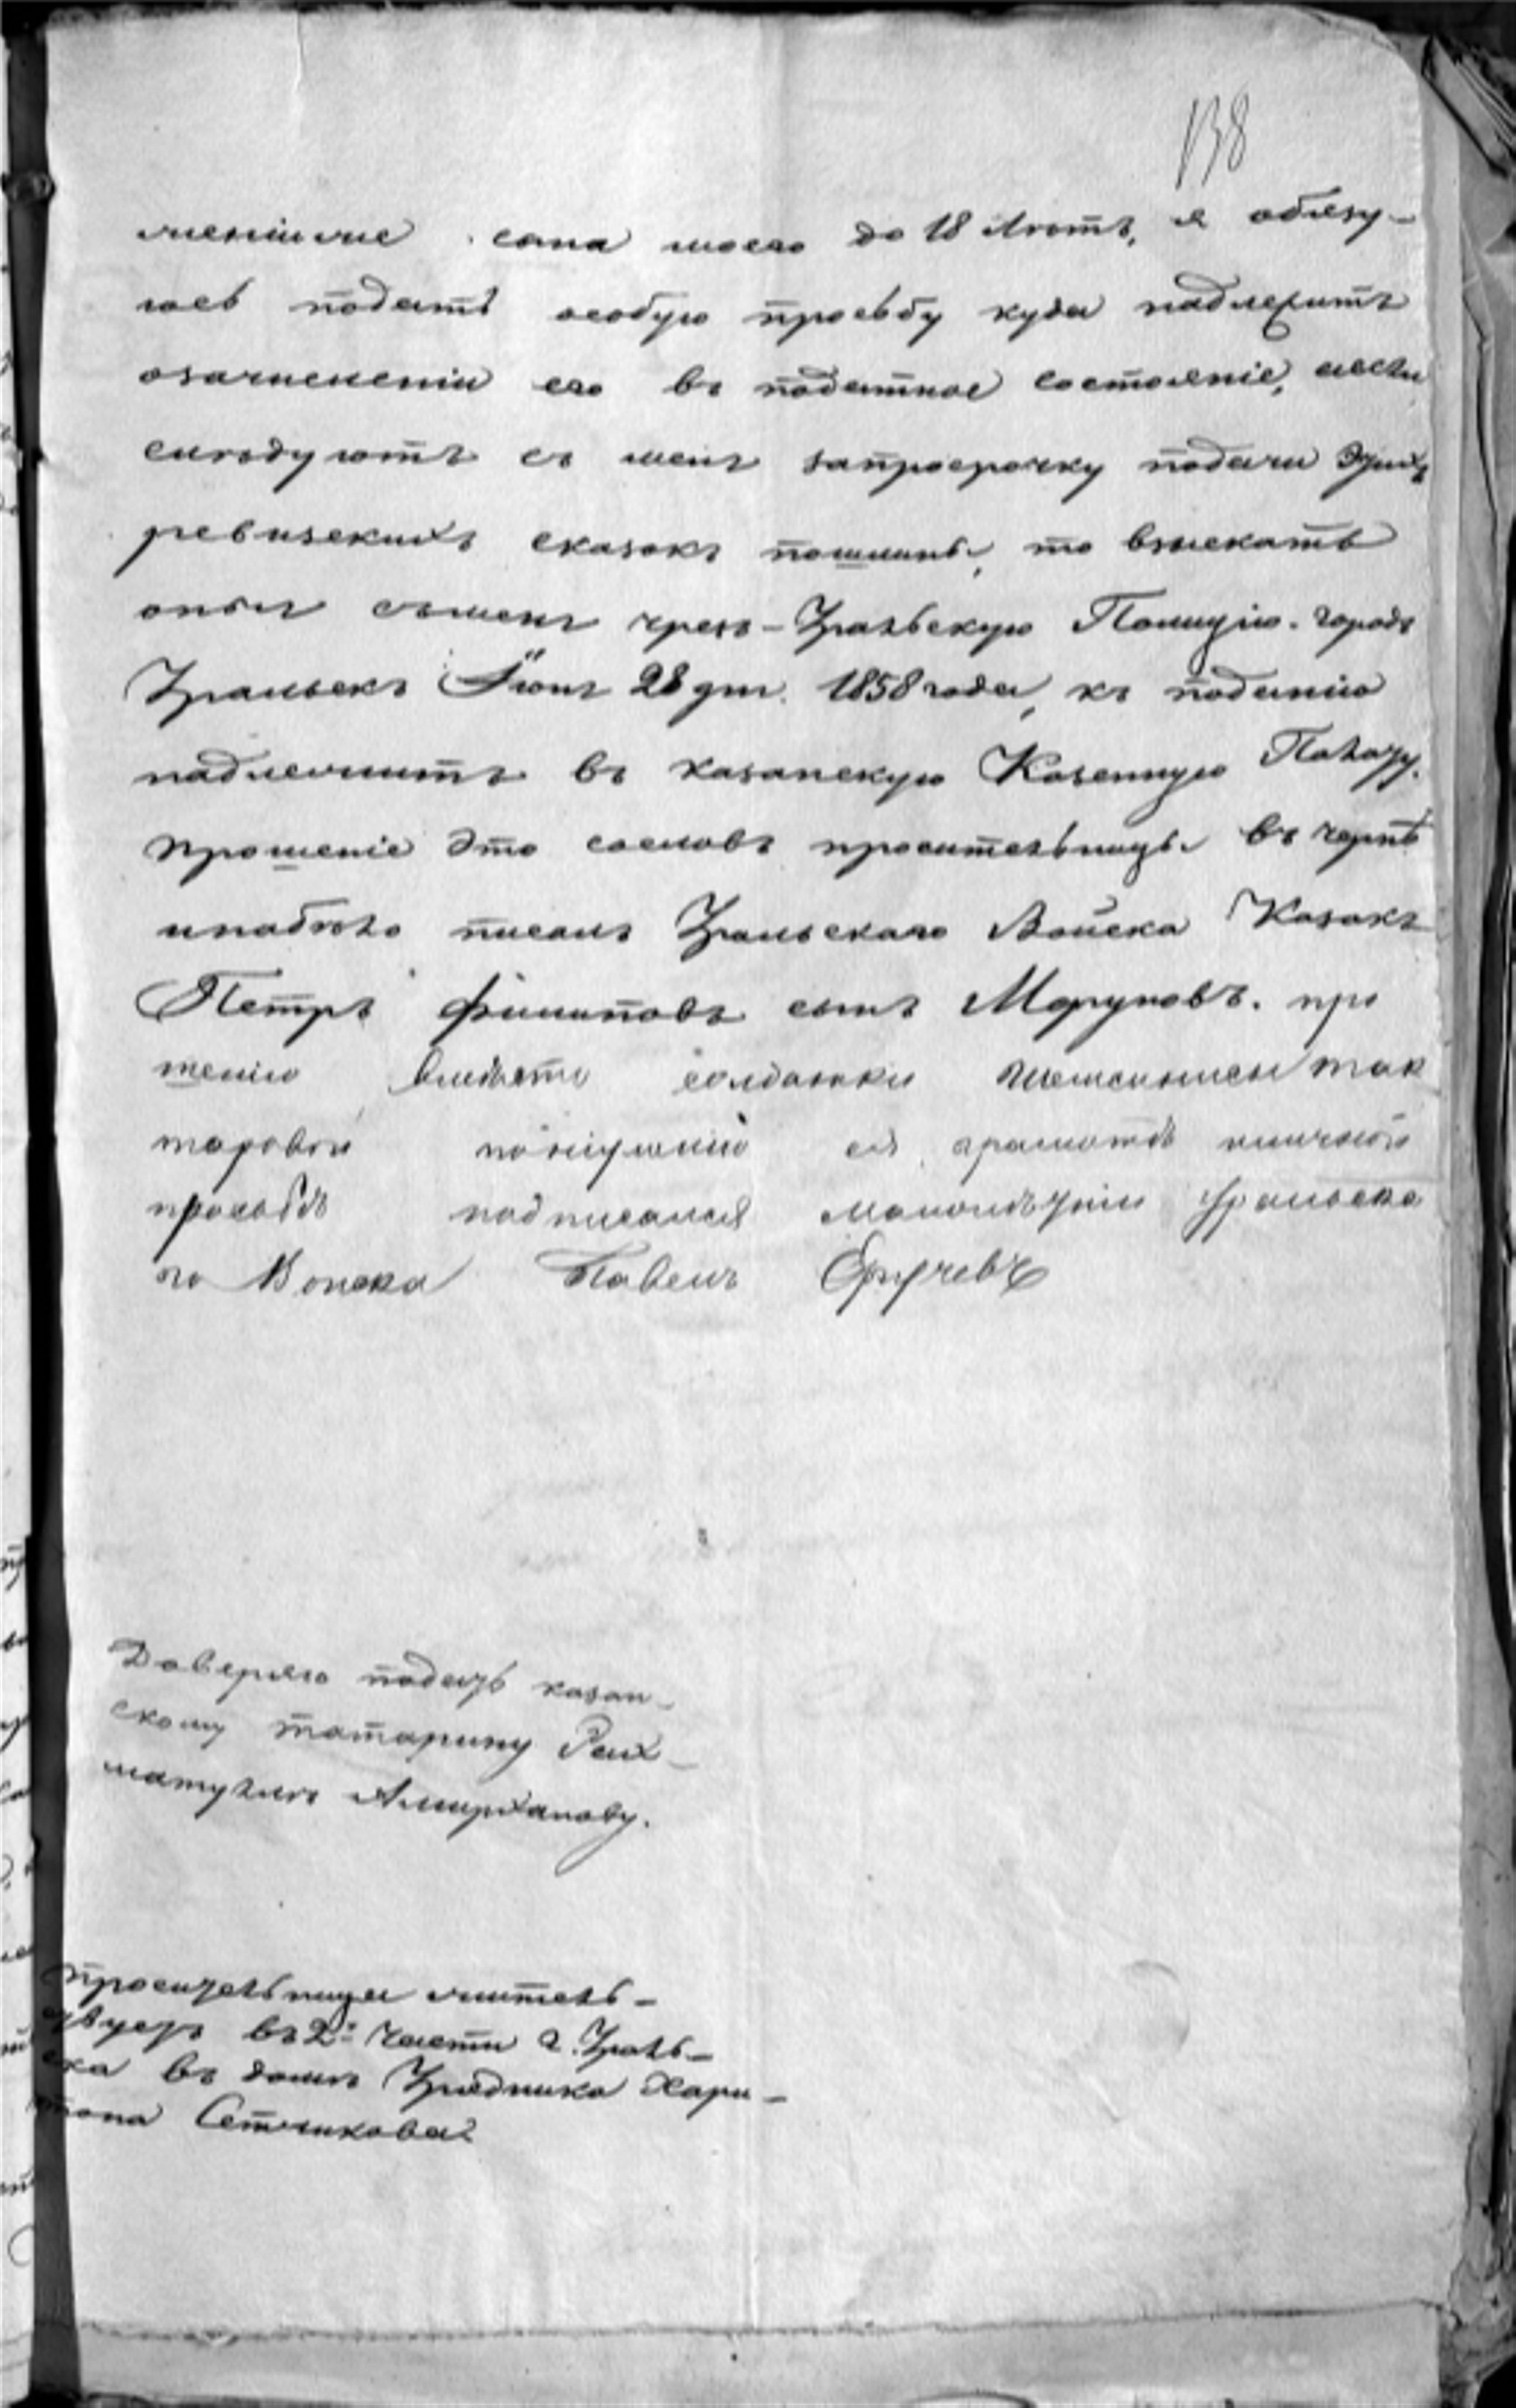 138
сына моего до 18 лѣтъ, я обязу-
юсь подать особую прозьбу куда надлежитъ
озачисленіи его въ податное состояніе, аесли
слѣдуютъ съ меня запросрочку подачи этихъ
ревизскихъ сказокъ пошлины, то взыскать
оныя съменя чрезъ-Уральскую Полицію. городъ
Уральскъ Іюня 28 дня. 1858 года, къ поданію
надлежитъ въ казанскую Казенную Палату.
прошеніе это сословъ просительницы въ чернѣ
инабѣло писалъ Уральскаго Войска Казакъ
Петръ Филиповъ сынъ Моруновъ. про
шенію солдатки так
таровой поніуменію ея грамотѣ иличной
прозьбѣ подписался малолѣтній Уральска
го Войска Павелъ
Доверяю подать казан-
скому татарину Рах-
матулле Амирханову.
просительница житель-
ствуетъ въ 2й части г.Ураль-
ска въ доме Урядника Хари-
тона Сетчикова